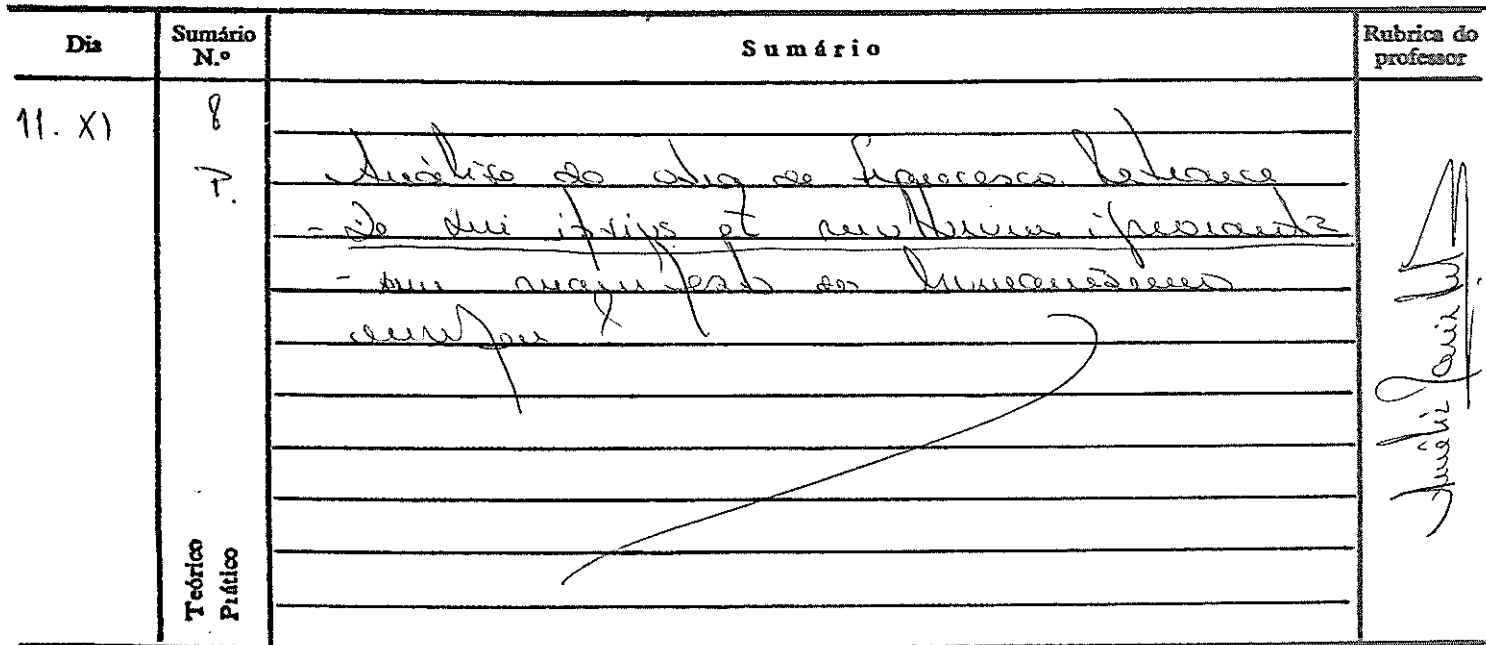 Dia
Sumário N.º
Sumário
Rubrica do professor
11. XI
8
P.
Análise da obra de Francesco Petrarca
- De sui ipsius et multorum ignorantia
- um manifesto do humanismo
Teórico
Prático